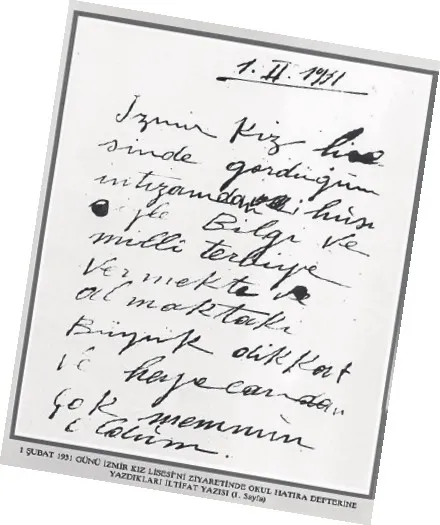 1. II. 1931
İzmir Kız lise
sinde gördüğüm
intizamdan
Bilgi ve
milli terbiye
vermekte ve
almaktaki
Büyük dikkat
ve heyecandan
çok memnun
oldum.
1 ŞUBAT 1931 GÜNÜ İZMİR KIZ LİSESİ'Nİ ZİYARETİNDE OKUL HATIRA DEFTERİNE
YAZDIKLARI İLTİFAT YAZISI (1. Sayfa)